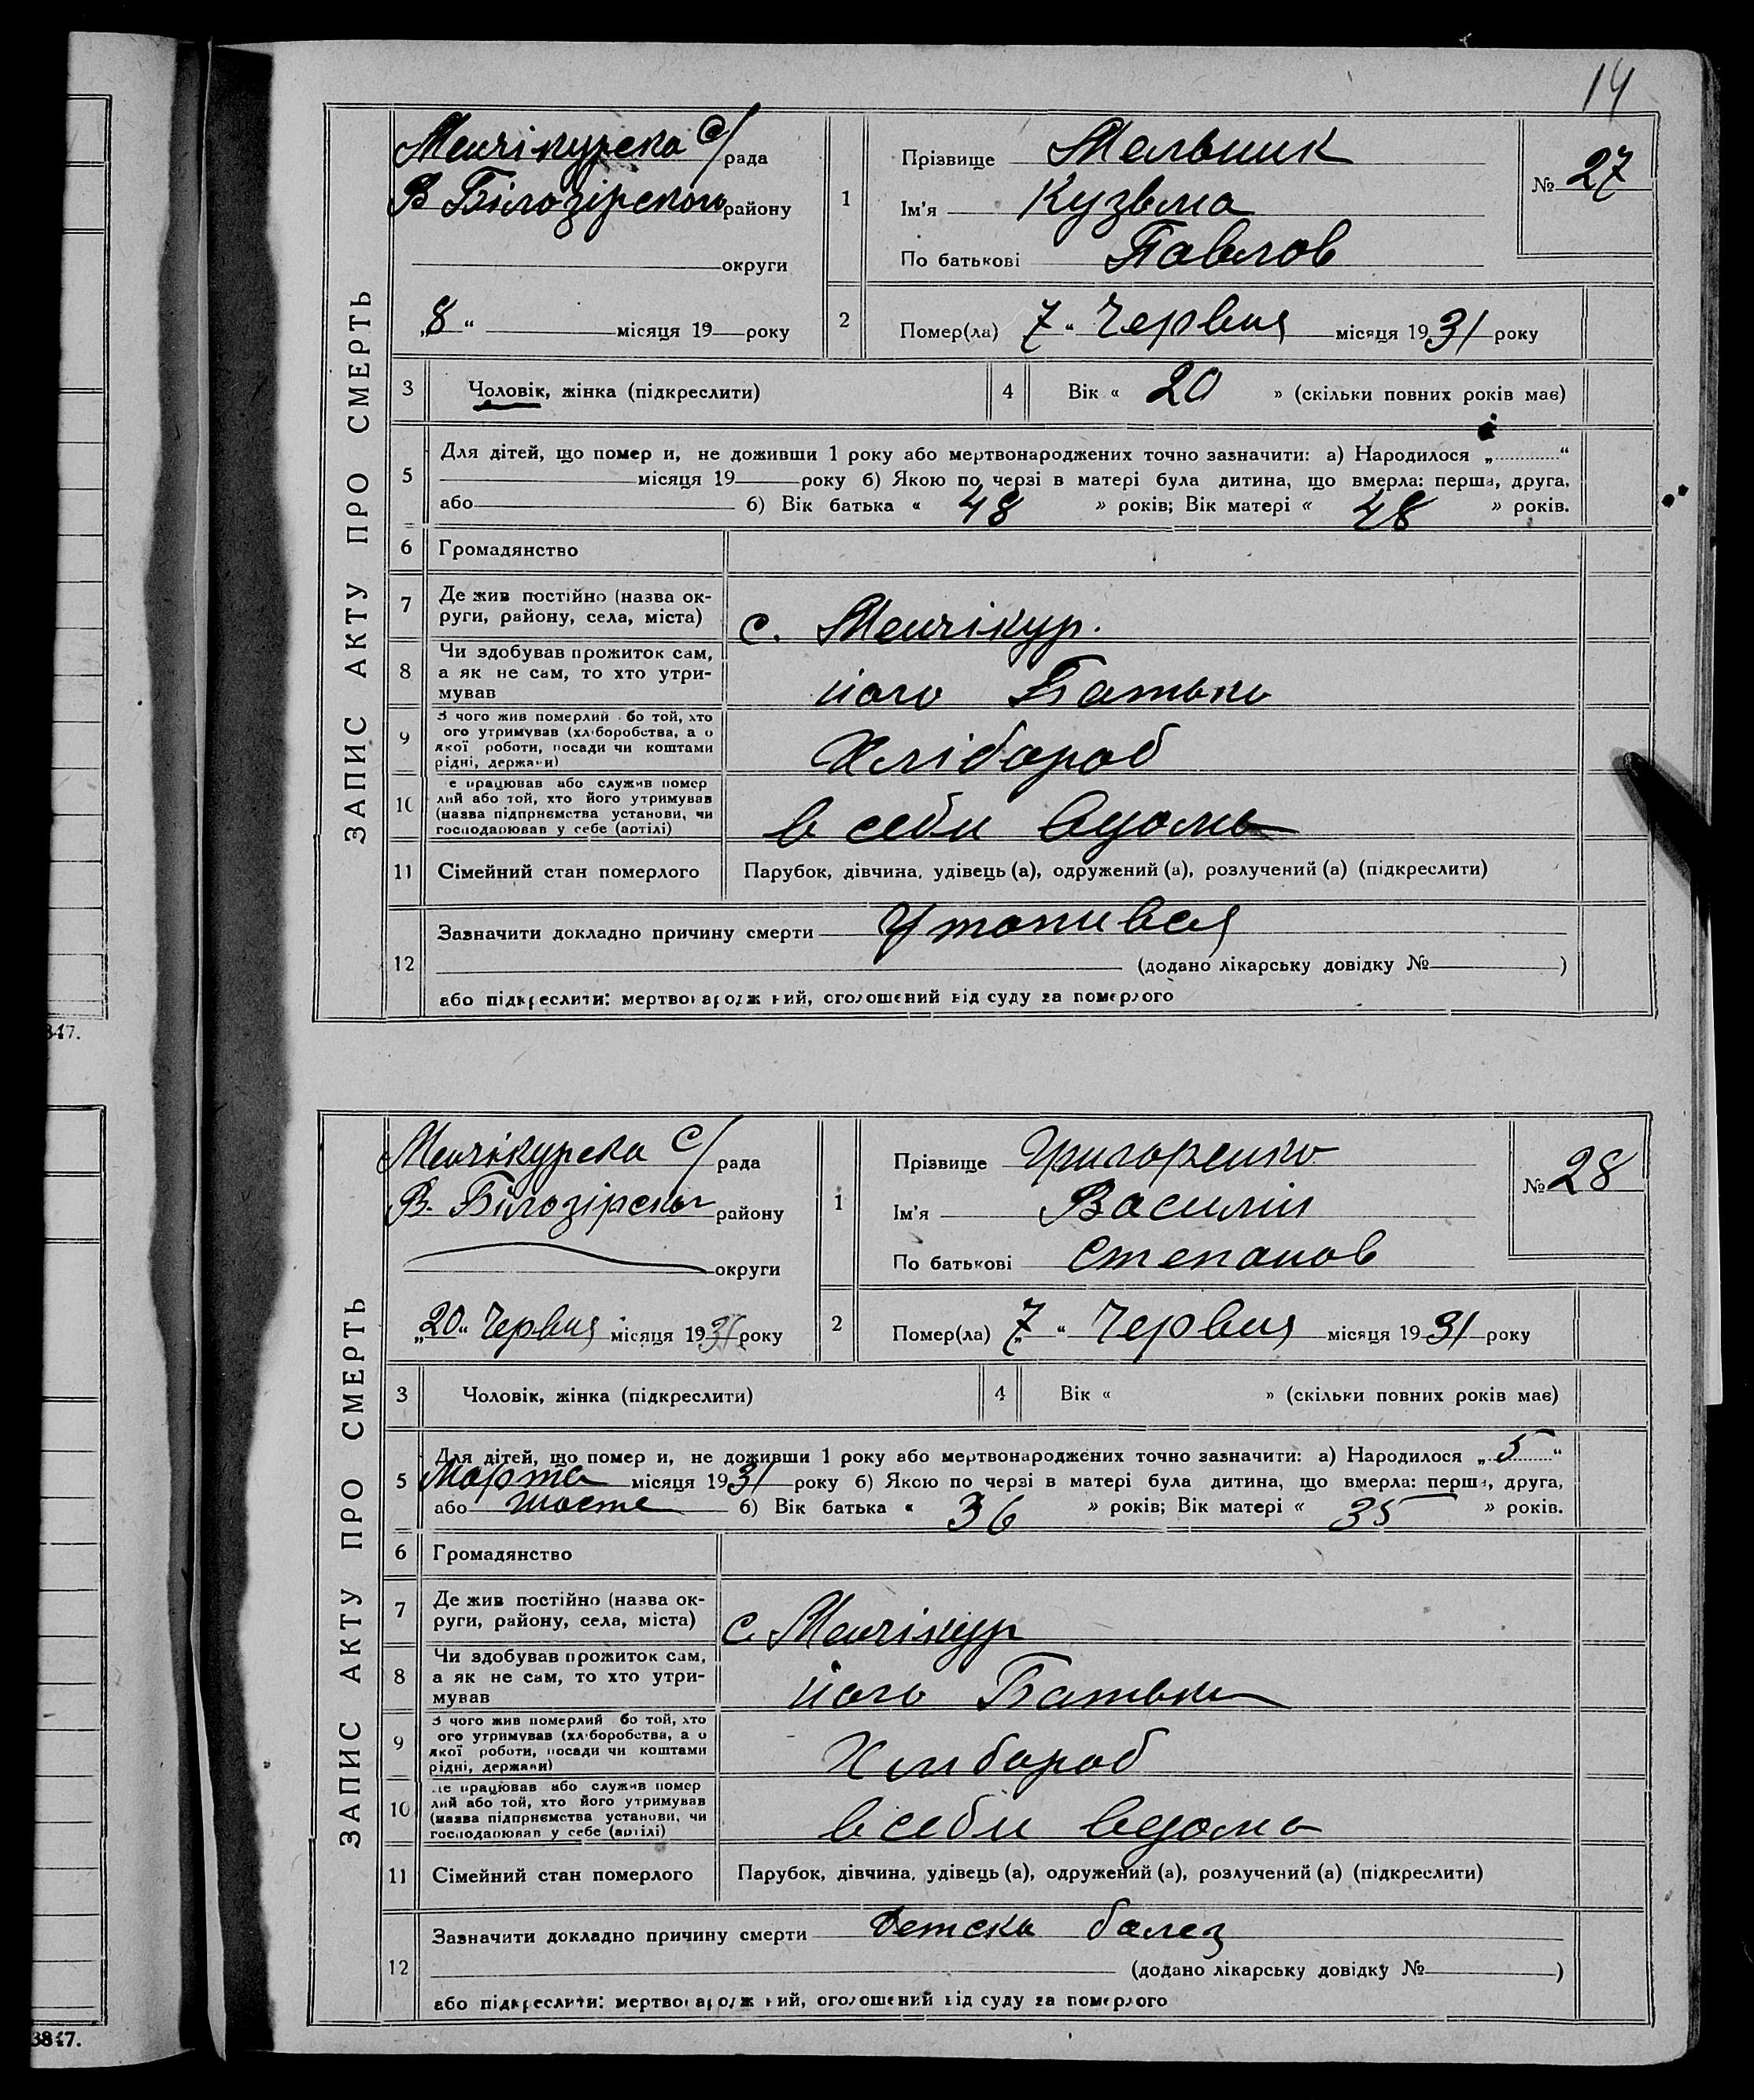 14
ЗАПИС АКТУ ПРО СМЕРТЬ
Менчікурска с/рада
В Білозірского району
округи
„8“ місяця 19 року
1
Прізвище Мельник
Ім'я Кузьма
По батькові Павлов
№ 27
2
Помер(ла) 7 “ Червня місяця 1931 року
3 Чоловік, жінка (підкреслити)
4 Вік « 20 » (скільки повних років має)
5 Для дітей, що помер и, не доживши 1 року або мертвонароджених точно зазначити: а) Народилося „ “
місяця 19 року б) Якою по черзі в матері була дитина, що вмерла: перша, друга,
або б) Вік батька « 48 » років; Вік матері « 48 » років.
6 Громадянство
7 Де жив постійно (назва ок-
руги, району, села, міста) с. Менчікур.
8 Чи здобував прожиток сам,
а як не сам, то хто утри-
мував його Батько
9 З чого жив померлий бо той, хто
ого утримував (хліборобства, а о
якої роботи, посади чи коштами
рідні, держави) Хлібороб
10 е працював або служив помер
лий або той, хто його утримував
(назва підприємства установи, чи
господарював у себе (артілі) в себи вдома
11 Сімейний стан померлого Парубок, дівчина, удівець (а), одружений (а), розлучений (а) (підкреслити)
12 Зазначити докладно причину смерти Утопився
(додано лікарську довідку № )
або підкреслити: мертвонароджений, оголошений від суду за померлого
347.
ЗАПИС АКТУ ПРО СМЕРТЬ
Менчікурска с/рада
В. Білозірског району
округи
„20“ Червня місяця 1931 року
1
Прізвище Григоренко
Ім'я Василій
По батькові Степанов
№ 28
2
Помер(ла) 7 “ Червня місяця 1931 року
3 Чоловік, жінка (підкреслити)
4 Вік « » (скільки повних років має)
5 Для дітей, що помер и, не доживши 1 року або мертвонароджених точно зазначити: а) Народилося „5“
Марта місяця 1931 року б) Якою по черзі в матері була дитина, що вмерла: перша, друга,
або шосте б) Вік батька « 36 » років; Вік матері « 35 » років.
6 Громадянство
7 Де жив постійно (назва ок-
руги, району, села, міста) с. Менчікур
8 Чи здобував прожиток сам,
а як не сам, то хто утри-
мував його Батько
9 З чого жив померлий бо той, хто
ого утримував (хліборобства, а о
якої роботи, посади чи коштами
рідні, держави) Хлибороб
10 е працював або служив помер
лий або той, хто його утримував
(назва підприємства установи, чи
господарював у себе (артілі) в себи вдома
11 Сімейний стан померлого Парубок, дівчина, удівець (а), одружений (а), розлучений (а) (підкреслити)
12 Зазначити докладно причину смерти Детска балез
(додано лікарську довідку № )
або підкреслити: мертвонароджений, оголошений від суду за померлого
3847.